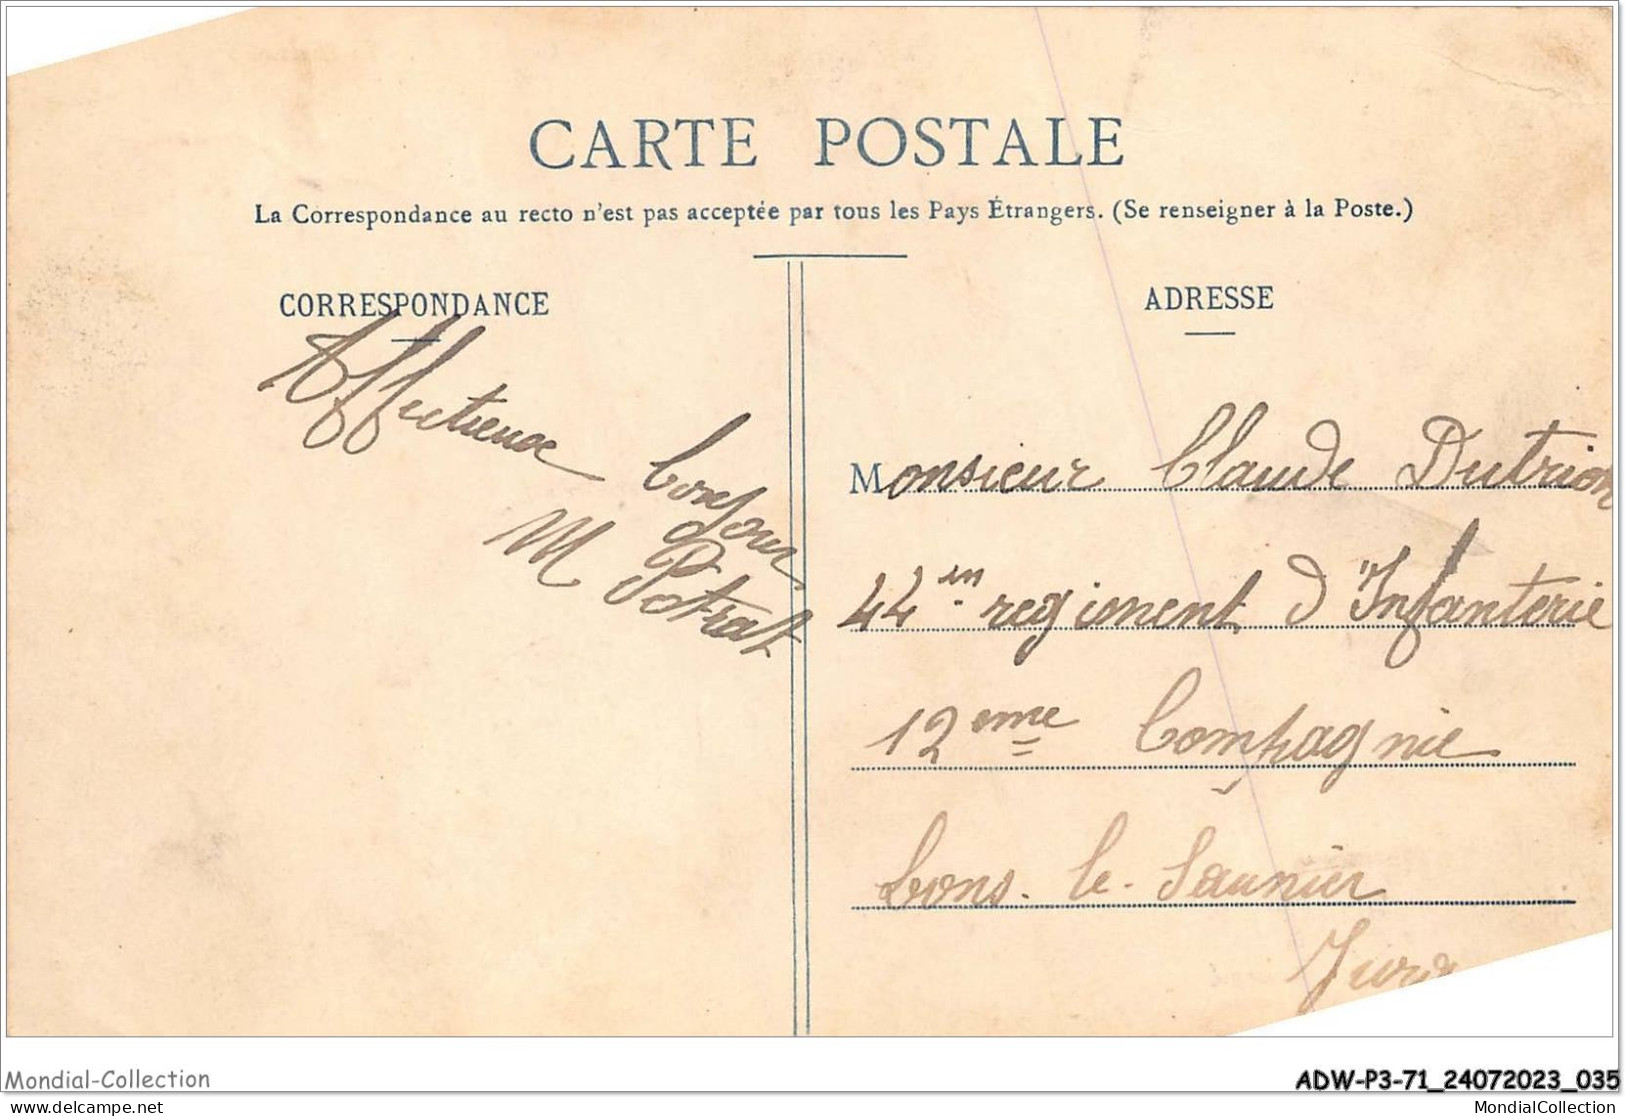 CARTE POSTALE
La Correspondance au recto n'est pas acceptée par tous les Pays Étrangers. (Se renseigner à la Poste.)
CORRESPONDANCE
Affectieux bonjour
M Petrat
ADRESSE
Monsieur Claude Dutrion
44 em regiment d'Infanterie
12 eme Compagnie
Lons-le-Saunier
Jura
Mondial-Collection
ADW-P3-71_24072023_035
delcampe.net
MondialCollection